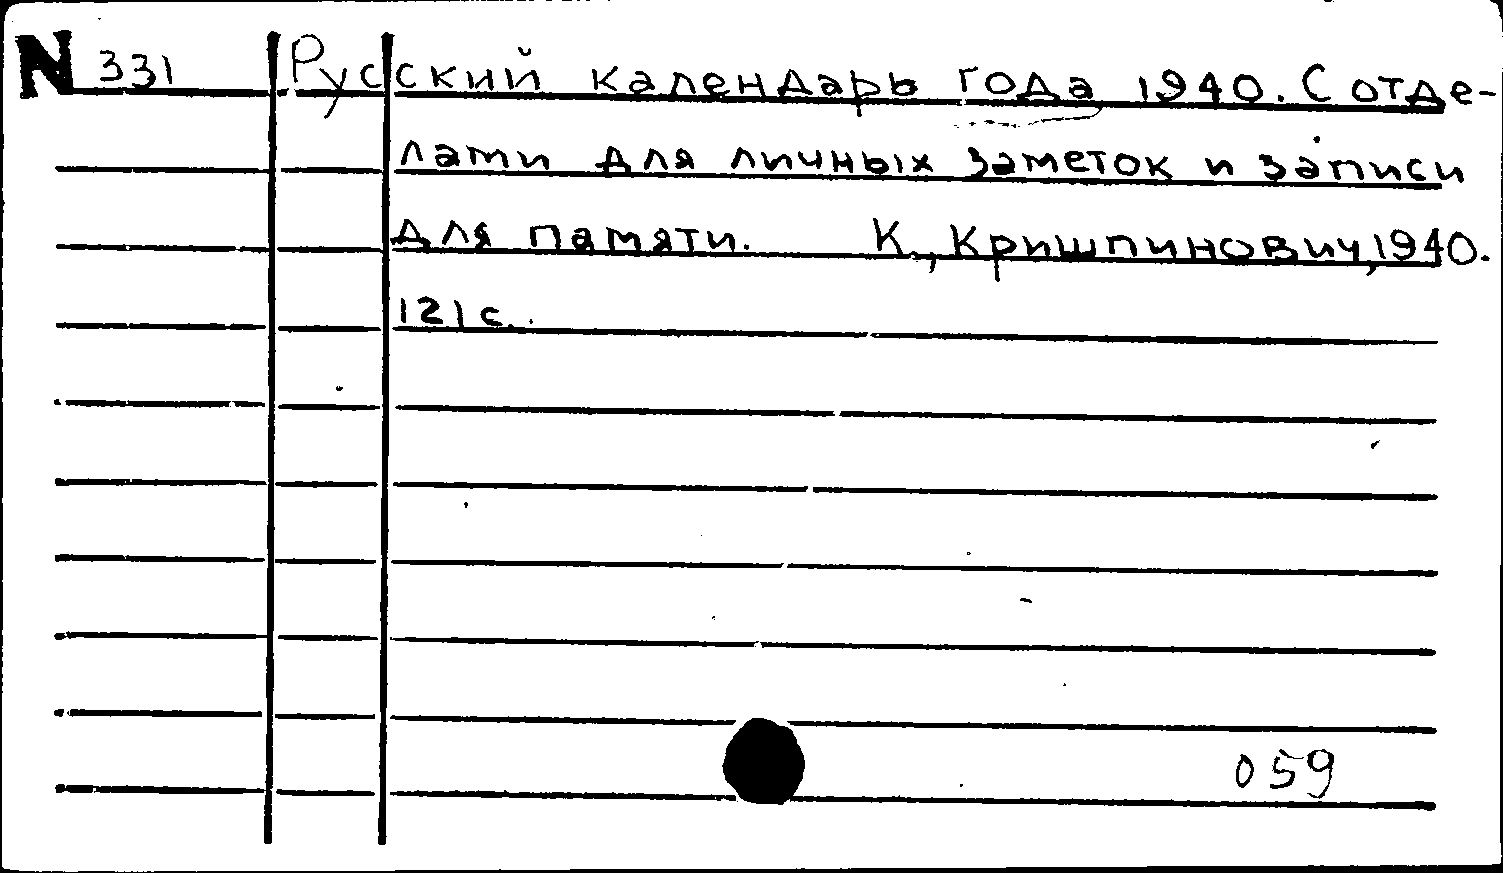 N 331 Русский календарь года 1940. С отде-
лами для личных заметок и записи
для памяти. К., Кришпинович, 1940.
121 с.
059